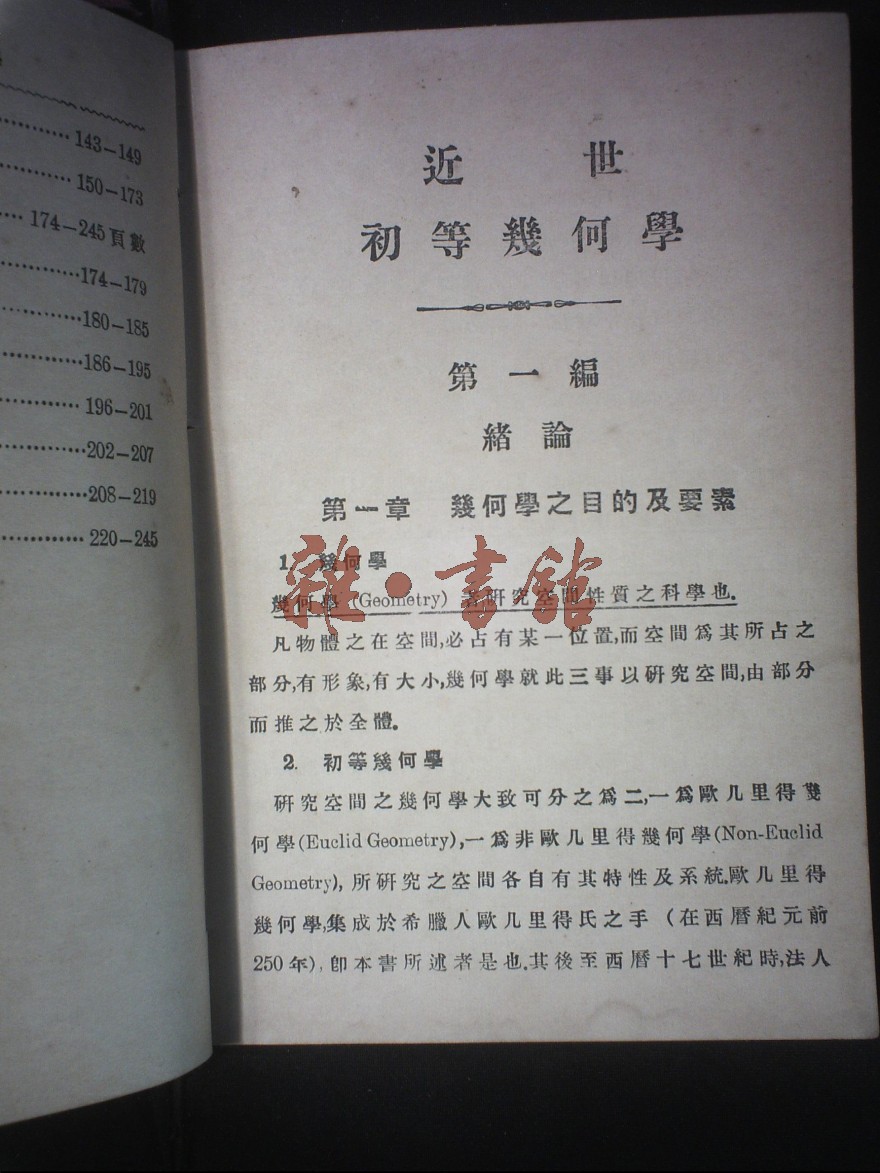 143–149
150–173
174–245頁數
174–179
180–185
186–195
196–201
202–207
208–219
220–245
近世
初等幾何學
第一編
緒論
第一章 幾何學之目的及要素
1. 幾何學
幾何學 (Geometry) 者,研究空間性質之科學也.
凡物體之在空間,必占有某一位置,而空間爲其所占之
部分,有形象,有大小,幾何學就此三事以研究空間,由部分
而推之於全體.
2. 初等幾何學
研究空間之幾何學大致可分之爲二,一爲歐几里得幾
何學(Euclid Geometry),一爲非歐几里得幾何學(Non-Euclid
Geometry), 所研究之空間各自有其特性及系統.歐几里得
幾何學,集成於希臘人歐几里得氏之手 (在西曆紀元前
250年), 卽本書所述者是也.其後至西曆十七世紀時,法人
雜·書館